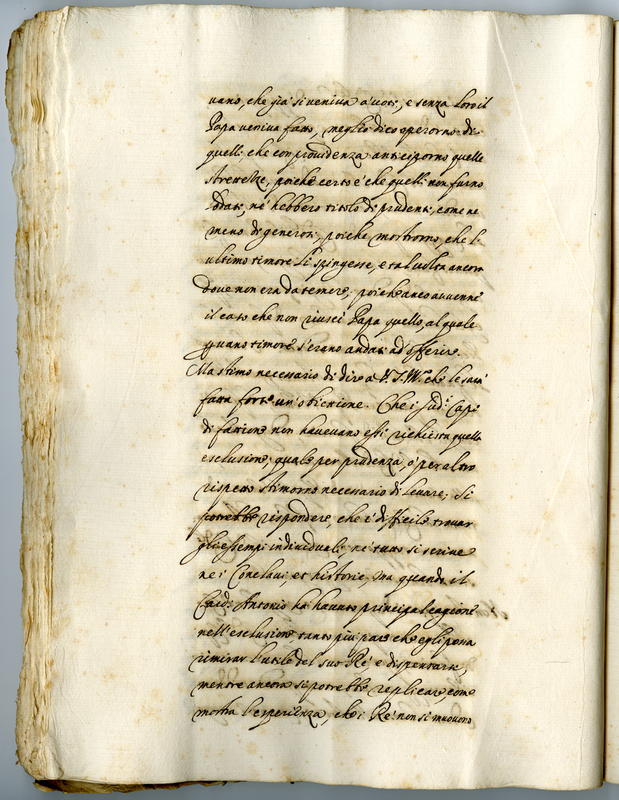 vano, che già si veniva a' voti, e senza loro il
Papa veniva fatto, meglio dico operorno di
quelli che con providenza anticiporno quelle
strettezze, poiche certo è che quelli non furno
lodati, nè hebbero titolo di prudenti, come ne
meno di generosi, poiche mostrorno, che l'
ultimo timore li spingesse, e tal volta ancora
dove non era da temere, poiche anco avvenne
il caso che non riuscì Papa quello, al quale
per vano timore s'erano andati ad offerire.
Ma stimo necessario di dire a V. S. Ill.ma che le sarà
fatta forte un'obiettione. Che i sud.i Capi
di fattione non havevano essi richiesta quella
esclusione, quale per prudenza, ò per altro
rispetto stimorno necessario di levare; Si
potrebbe rispondere, che è difficile trovar
gli essempi individuali, nè tutto si scrive
ne i Conclavi, et historie, ma quando il
Card. Antonio ha havuto principal cagione
nell'esclusione tanto più pare che egli possa
rimirar l'utile del suo Rè e dispensare,
mentre ancora si potrebbe replicare, come
mostra l'esperienza, che i Rè non si muovono